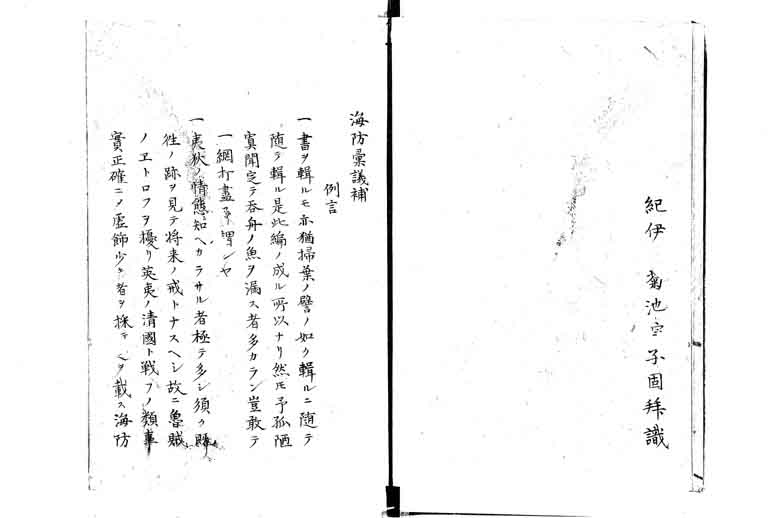 紀伊 菊池 子固拜識
海防彙議補
例言
一書ヲ輯ルモ亦猶掃葉ノ譬ノ如ク輯ルニ随テ
随テ輯ル是此編ノ成ル所以ナリ然ㇾ𪜈予孤陋
寡聞定テ呑舟ノ魚ヲ漏ス者多カラン豈敢テ
一網打盡ヲ謂ンヤ
一夷狄ノ情態知ヘカラサル者極テ多シ須ク
徃ノ跡ヲ見テ将来ノ戒トナスヘシ故ニ魯賊
ノヱトロフヲ擾リ英夷ノ清國ト戦フノ類事
實正確ニㄨ虚飾少キ者ヲ採テ之ヲ載ス海防